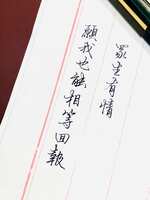 眾生有情
願我也能相等回報